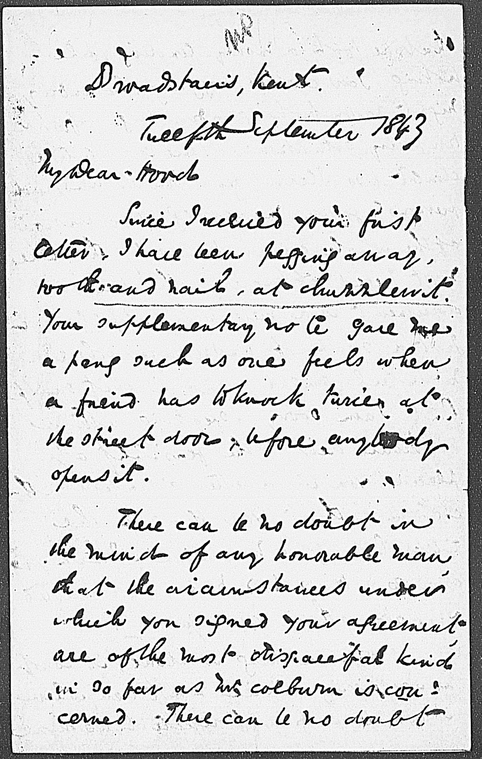 Broadstairs, Kent.
Twelfth September 1843
My Dear Hood
Since I received your first
letter, I have been pegging away,
tooth and nail, at Chuzzlewit.
Your supplementary note gave me
a pang such as one feels when
a friend has to knock twice at
the street door, before anybody
opens it.
There can be no doubt in
the mind of any honorable man
that the circumstances under
which you signed your agreement
are of the most disgraceful kind
in so far as Mr. Colburn is con-
cerned. There can be no doubt